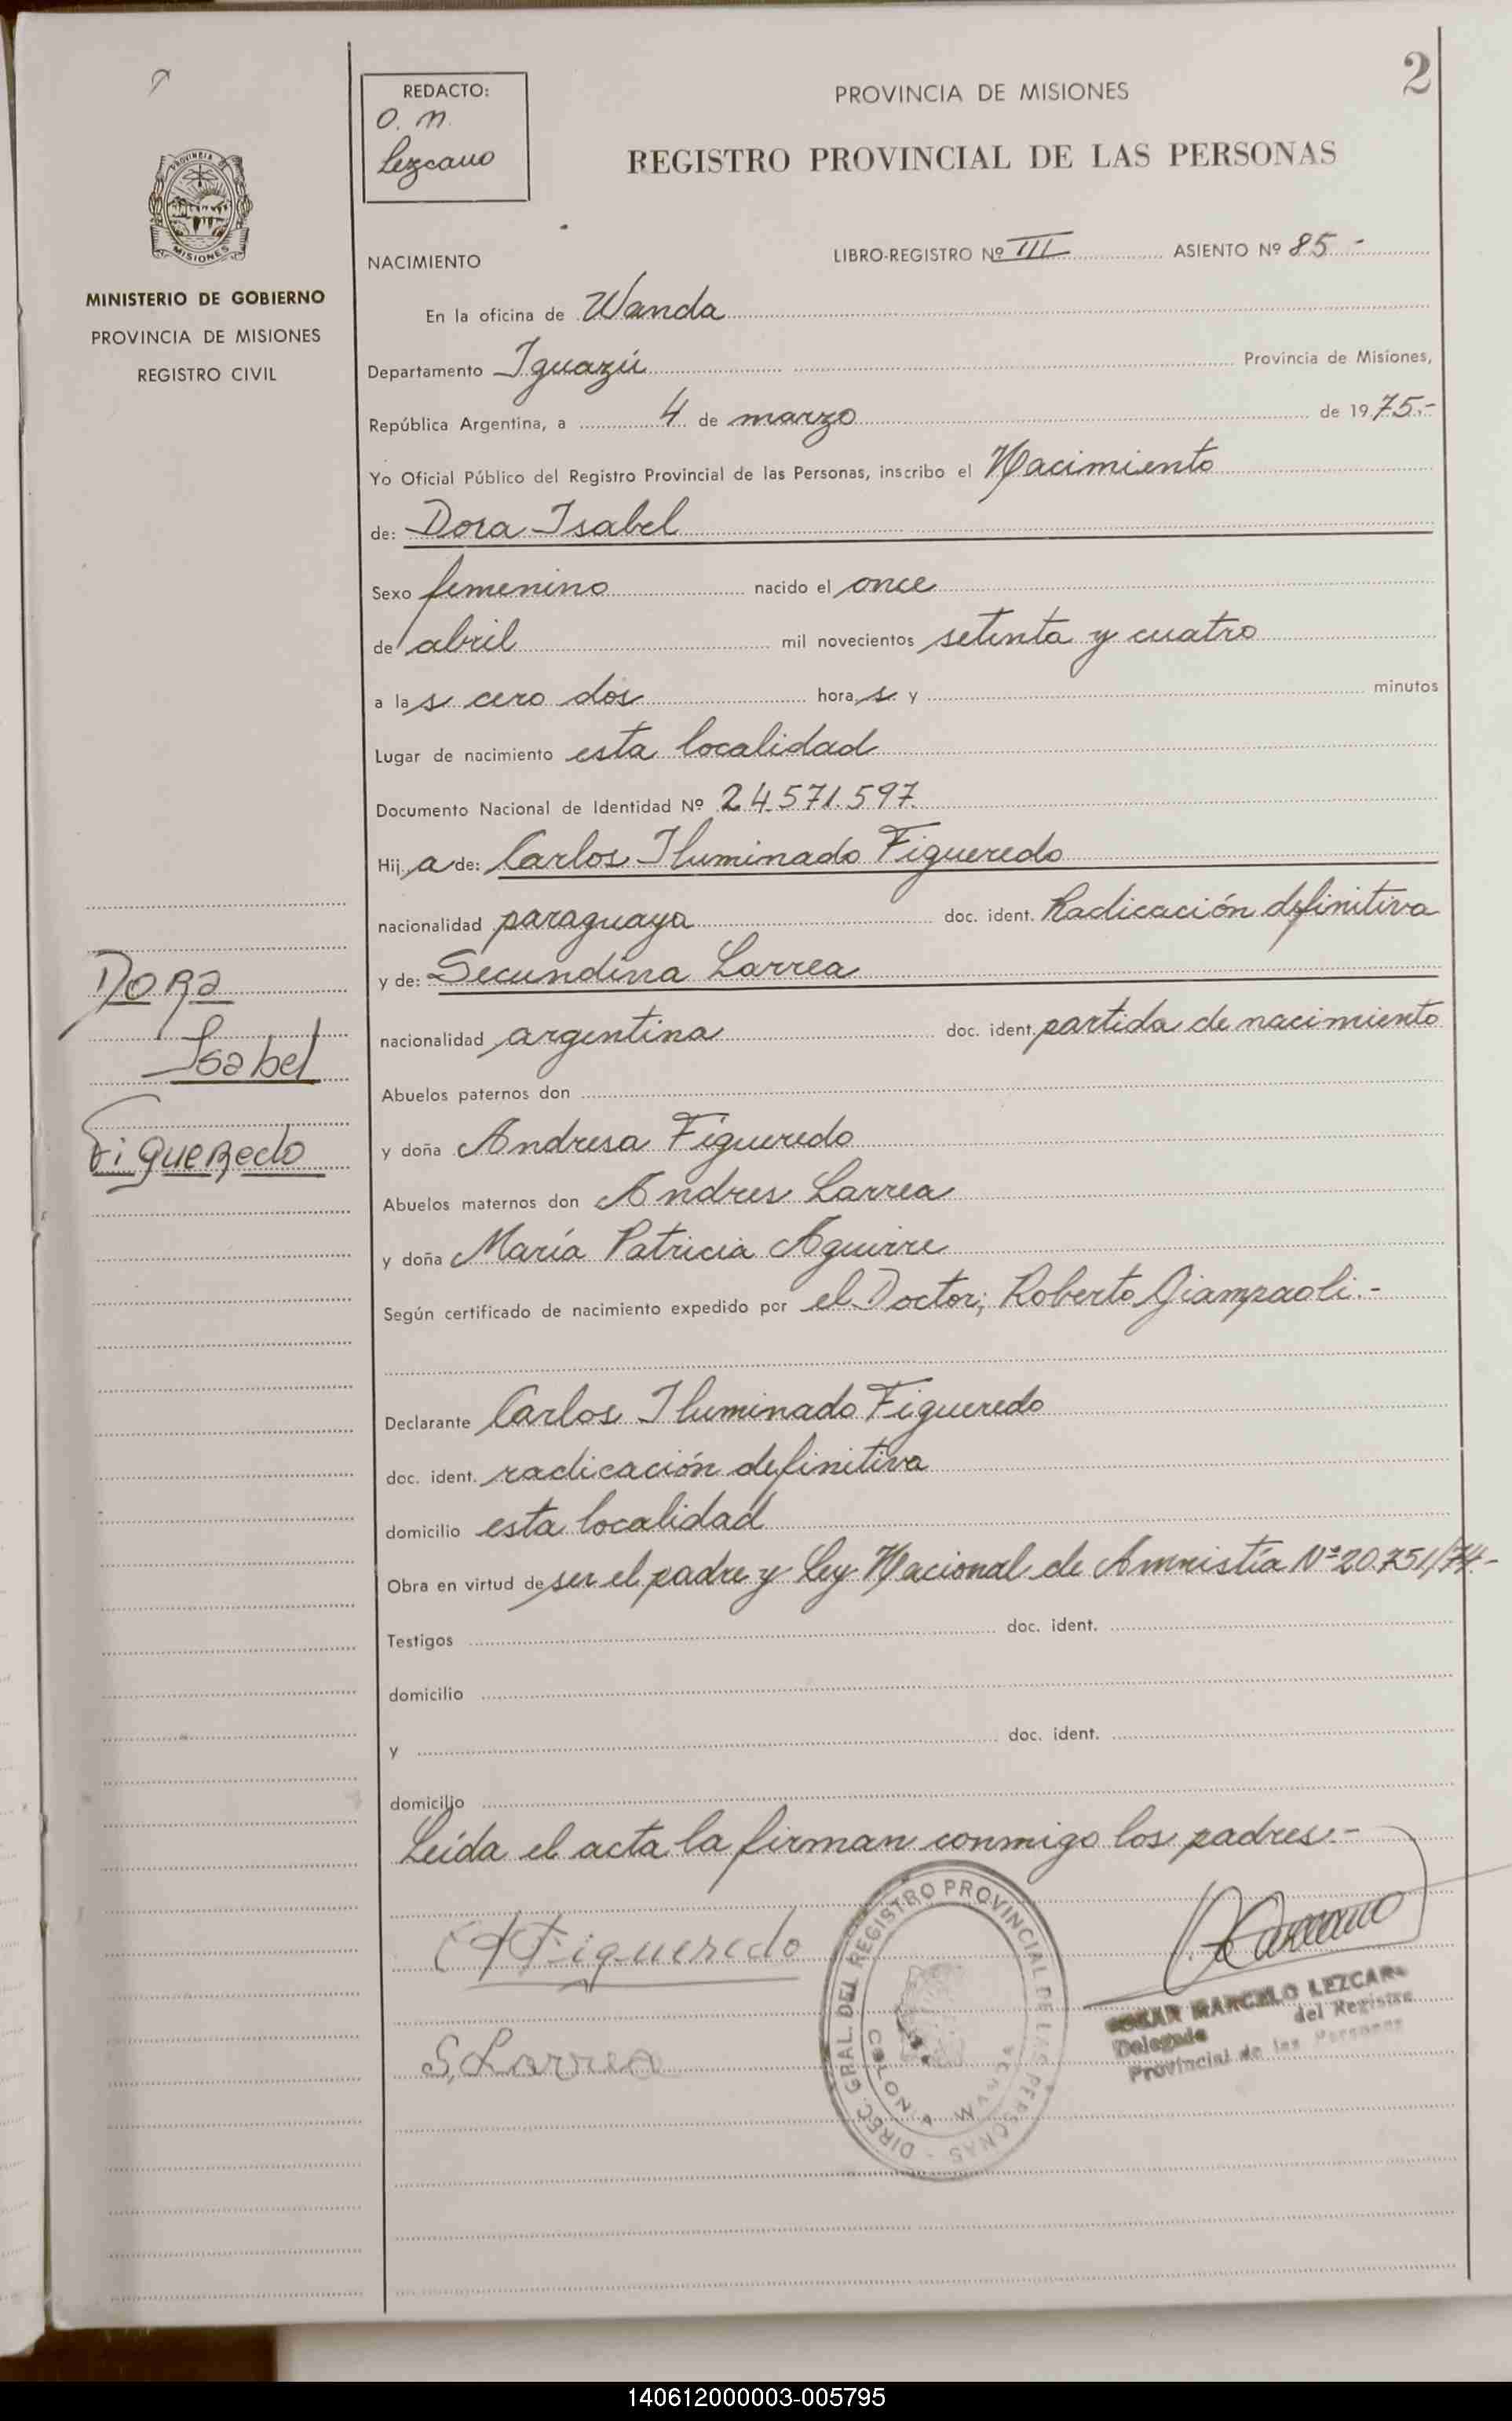 2
REDACTO:
O. M.
Lezcano
PROVINCIA DE MISIONES
REGISTRO PROVINCIAL DE LAS PERSONAS
PROVINCIA DE
MISIONES
MINISTERIO DE GOBIERNO
PROVINCIA DE MISIONES
REGISTRO CIVIL
NACIMIENTO LIBRO-REGISTRO Nº III ASIENTO Nº 85.-
En la oficina de Wanda
Departamento Iguazú Provincia de Misiones,
República Argentina, a 4 de marzo de 1975.-
Yo Oficial Público del Registro Provincial de las Personas, inscribo el Nacimiento
de: Dora Isabel
Sexo femenino nacido el once
de abril mil novecientos setenta y cuatro
a las cero dos horas y minutos
Lugar de nacimiento esta localidad
Documento Nacional de Identidad Nº 24.571.597
Hija de: Carlos Iluminado Figueredo
nacionalidad paraguaya doc. ident. Radicación definitiva
y de: Secundina Larrea
nacionalidad argentina doc. ident. partida de nacimiento
Abuelos paternos don
y doña Andresa Figueredo
Abuelos maternos don Andres Larrea
y doña María Patricia Aguirre
Según certificado de nacimiento expedido por el Doctor; Roberto Giampaoli.-
Declarante Carlos Iluminado Figueredo
doc. ident. radicación definitiva
domicilio esta localidad
Obra en virtud de ser el padre y Ley Nacional de Amnistía Nº 20.751/74.-
Testigos doc. ident.
domicilio
y doc. ident.
domicilio
Leída el acta la firman conmigo los padres.-
DORA
Isabel
Figueredo
Figueredo
S. Larrea
DIREC. GRAL. DEL REGISTRO PROVINCIAL DE LAS PERSONAS -
COLONIA WANDA
OSCAR MARCELO LEZCANO
Delegado del Registro
Provincial de las Personas
140612000003-005795